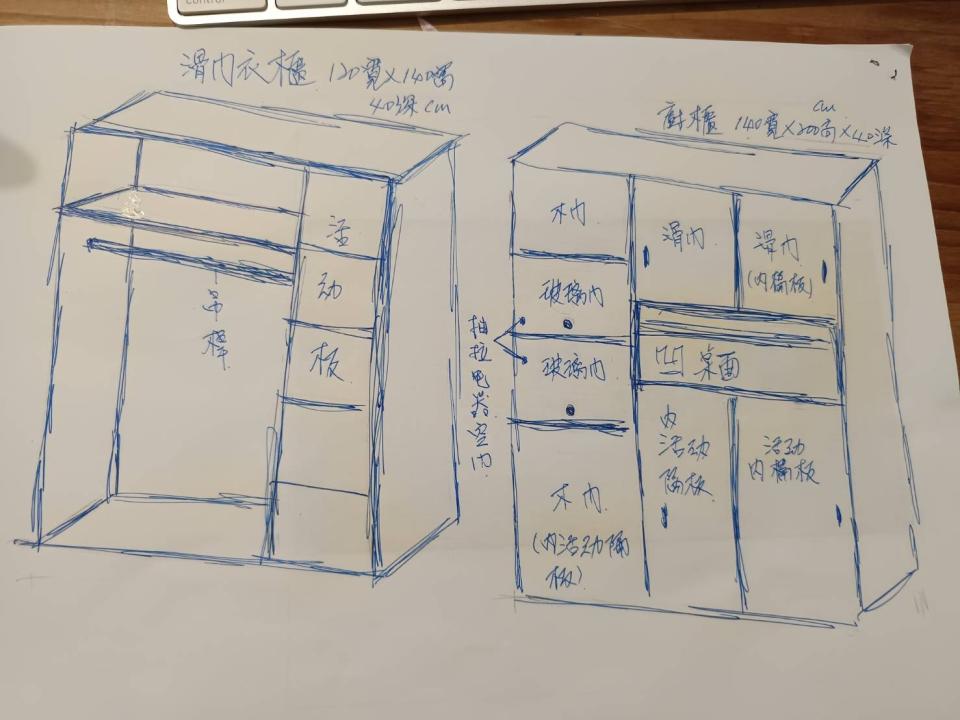 control
滑门衣櫃 120寬×140高
40深 cm
吊
桿
活
动
板
cm
廚櫃 140寬×200高×40深
木门
玻璃门
玻璃门
抽拉电器空门
木门
(内活动隔
板)
滑门
滑门
(内隔板)
凹 桌面
内
活动
隔板
活动
内隔板